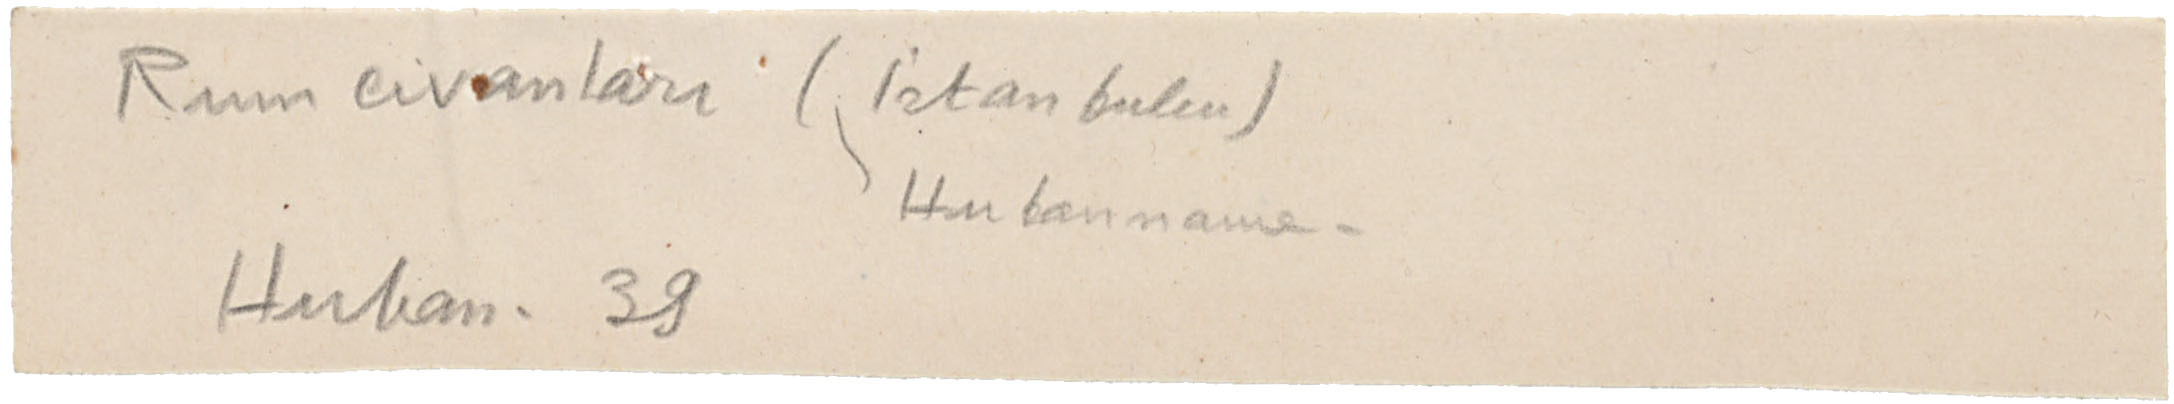 Rum civanları (İstanbulu)
Hubanname -
Huban. 39